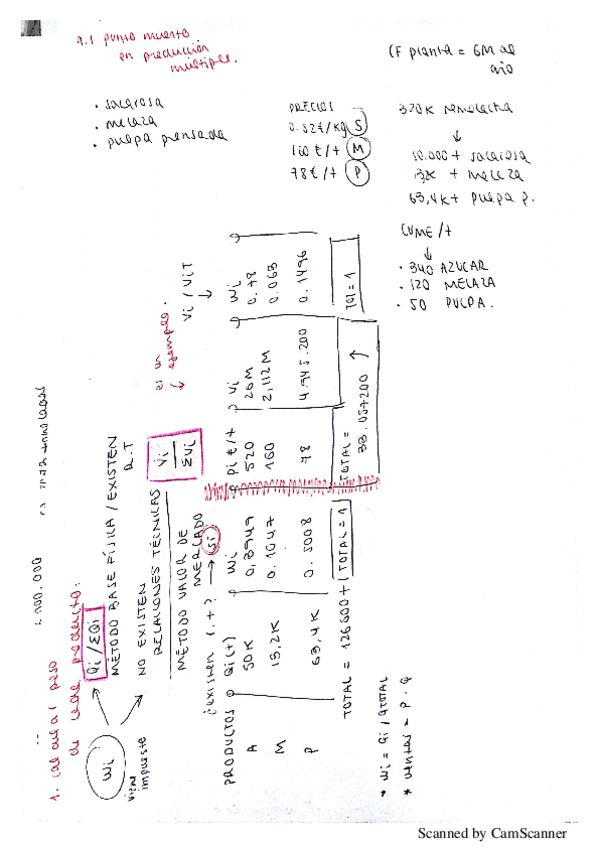 9.1 punto muerto
en producción
múltiples.
CF planta = 6M al
año
• sacarosa
• melaza
• pulpa prensada
PRECIOS
0.52€/Kg S
160 €/t M
78€/t P
320K remolacha
↓
50.000 t sacarosa
13,2K t melaza
63,4K t pulpa p.
CVME/t
↓
• 340 AZUCAR
• 120 MELAZA
• 50 PULPA.
1. calcular peso
de cada producto.
Wi
VIENE
IMPUESTO
Qi/ΣQi
MÉTODO BASE FÍSICA / EXISTEN
R.T
NO EXISTEN
RELACIONES TÉCNICAS
MÉTODO VALOR DE
MERCADO
Vi
ΣVi
es un
ejemplo.
↓
¿existen r.t? → Si
Vi/ViT
↓
PRODUCTOS Qi(t) Wi Pi €/t Vi Wi
A 50K 0,3949 520 26M 0.78
M 13,2K 0.1047 160 2,112M 0.063
P 63,4K 0.5008 78 4.945.200 0.1496
TOTAL = 126600 t TOTAL = 1 TOTAL = 33.057200 ↑ TOT = 1
* Wi = Qi/QTOTAL
* Ventas = P.Q
Scanned by CamScanner